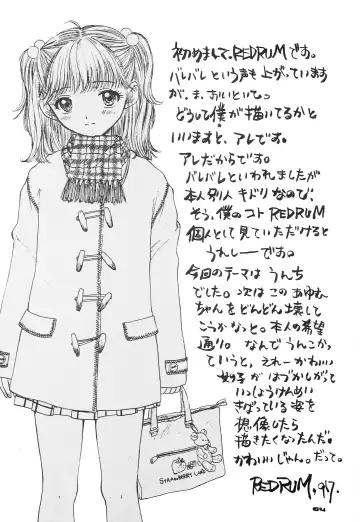 初めまして、REDRUMです。
バレバレという声も上がっています
が、ま、おいといて。
どうして僕が描いてるかと
いいますと、アレです。
アレだからです。
バレバレといわれましたが
本人別人キドリなので、
そう、僕のコトREDRUM
個人として見ていただけると
うれしーです。
今回のテーマはうんち
でした。次はこのあゆむ
ちゃんをどんどん壊して
こうかなっと。本人の希望
通り。なんでうんこかっ
ていうと、えれーかわいい
女の子がはづかしがって
いっしょうけんめい
きばっている姿を
想像したら
描きたくなったんだ。
かわいいじゃん。だって。
REDRUM, 97.
STRAWBERRY LAND